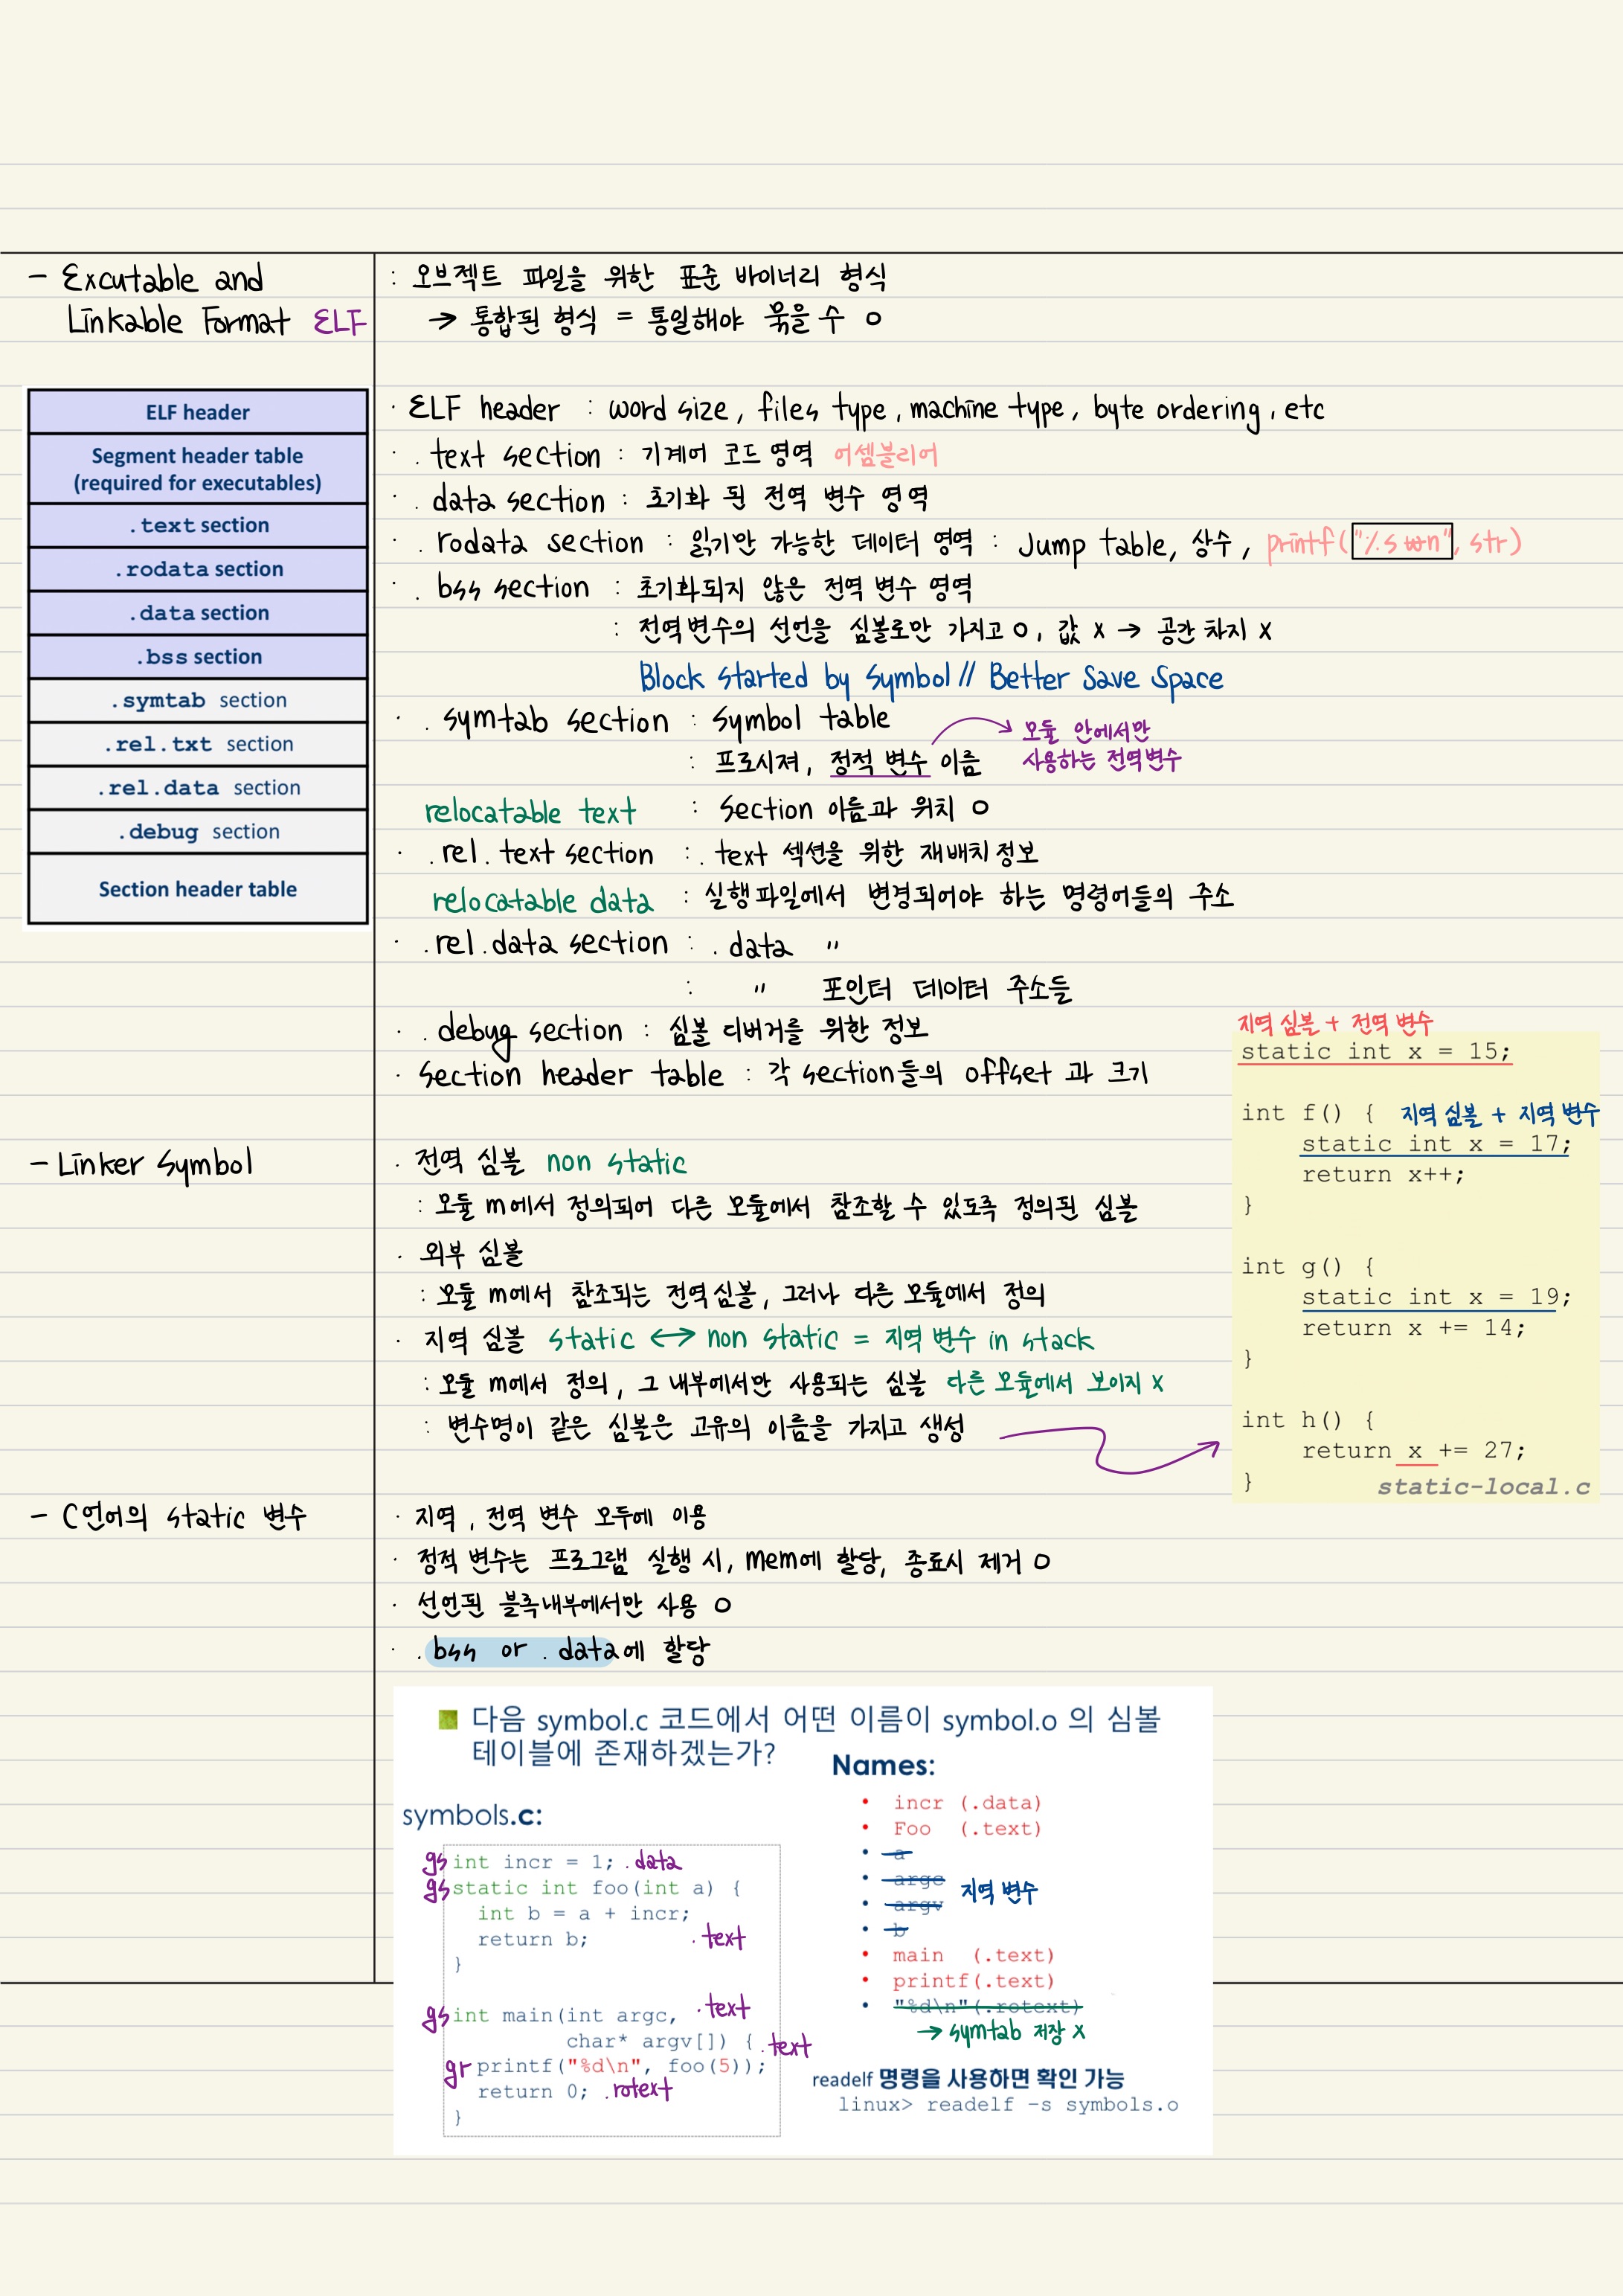 - Excutable and
Linkable Format ELF
: 오브젝트 파일을 위한 표준 바이너리 형식
→ 통합된 형식 = 통일해야 묶을 수 o
ELF header
Segment header table
(required for executables)
.text section
.rodata section
.data section
.bss section
.symtab section
.rel.txt section
.rel.data section
.debug section
Section header table
· ELF header : word size, files type, machine type, byte ordering, etc
· .text section : 기계어 코드 영역 어셈블리어
· .data section : 초기화 된 전역 변수 영역
· .rodata section : 읽기만 가능한 데이터 영역 : Jump table, 상수, printf("%s₩n", str)
· .bss section : 초기화되지 않은 전역 변수 영역
: 전역변수의 선언을 심볼로만 가지고 o, 값 x → 공간 차지 x
Block started by Symbol // Better Save Space
· .symtab section : Symbol table
: 프로시져, 정적 변수 이름
모듈 안에서만
사용하는 전역변수
: Section 이름과 위치 o
relocatable text
· .rel.text section : .text 섹션을 위한 재배치 정보
relocatable data : 실행파일에서 변경되어야 하는 명령어들의 주소
· .rel.data section : .data "
: " 포인터 데이터 주소들
· .debug section : 심볼 디버거를 위한 정보
· Section header table : 각 section들의 offset 과 크기
지역 심볼 + 전역 변수
static int x = 15;
int f() { 지역 심볼 + 지역 변수
static int x = 17;
return x++;
}
int g() {
static int x = 19;
return x += 14;
}
int h() {
return x += 27;
}
static-local.c
- Linker Symbol
· 전역 심볼 non static
: 모듈 m에서 정의되어 다른 모듈에서 참조할 수 있도록 정의된 심볼
· 외부 심볼
: 모듈 m에서 참조되는 전역심볼, 그러나 다른 모듈에서 정의
· 지역 심볼 static ↔ non static = 지역 변수 in stack
: 모듈 m에서 정의, 그 내부에서만 사용되는 심볼 다른 모듈에서 보이지 x
: 변수명이 같은 심볼은 고유의 이름을 가지고 생성
- C언어의 static 변수
· 지역, 전역 변수 모두에 이용
· 정적 변수는 프로그램 실행 시, mem에 할당, 종료시 제거 o
· 선언된 블록내부에서만 사용 o
· .bss or .data에 할당
다음 symbol.c 코드에서 어떤 이름이 symbol.o 의 심볼
테이블에 존재하겠는가?
symbols.c:
gs int incr = 1; .data
gs static int foo(int a) {
int b = a + incr;
return b; .text
}
gs int main(int argc, .text
char* argv[]) { .text
gr printf("%d\n", foo(5));
return 0; .rotext
}
Names:
• incr (.data)
• Foo (.text)
• a
• argc
• argv
지역 변수
• b
• main (.text)
• printf(.text)
• "%d\n"(.rotext)
→ symtab 저장 x
readelf 명령을 사용하면 확인 가능
linux> readelf -s symbols.o